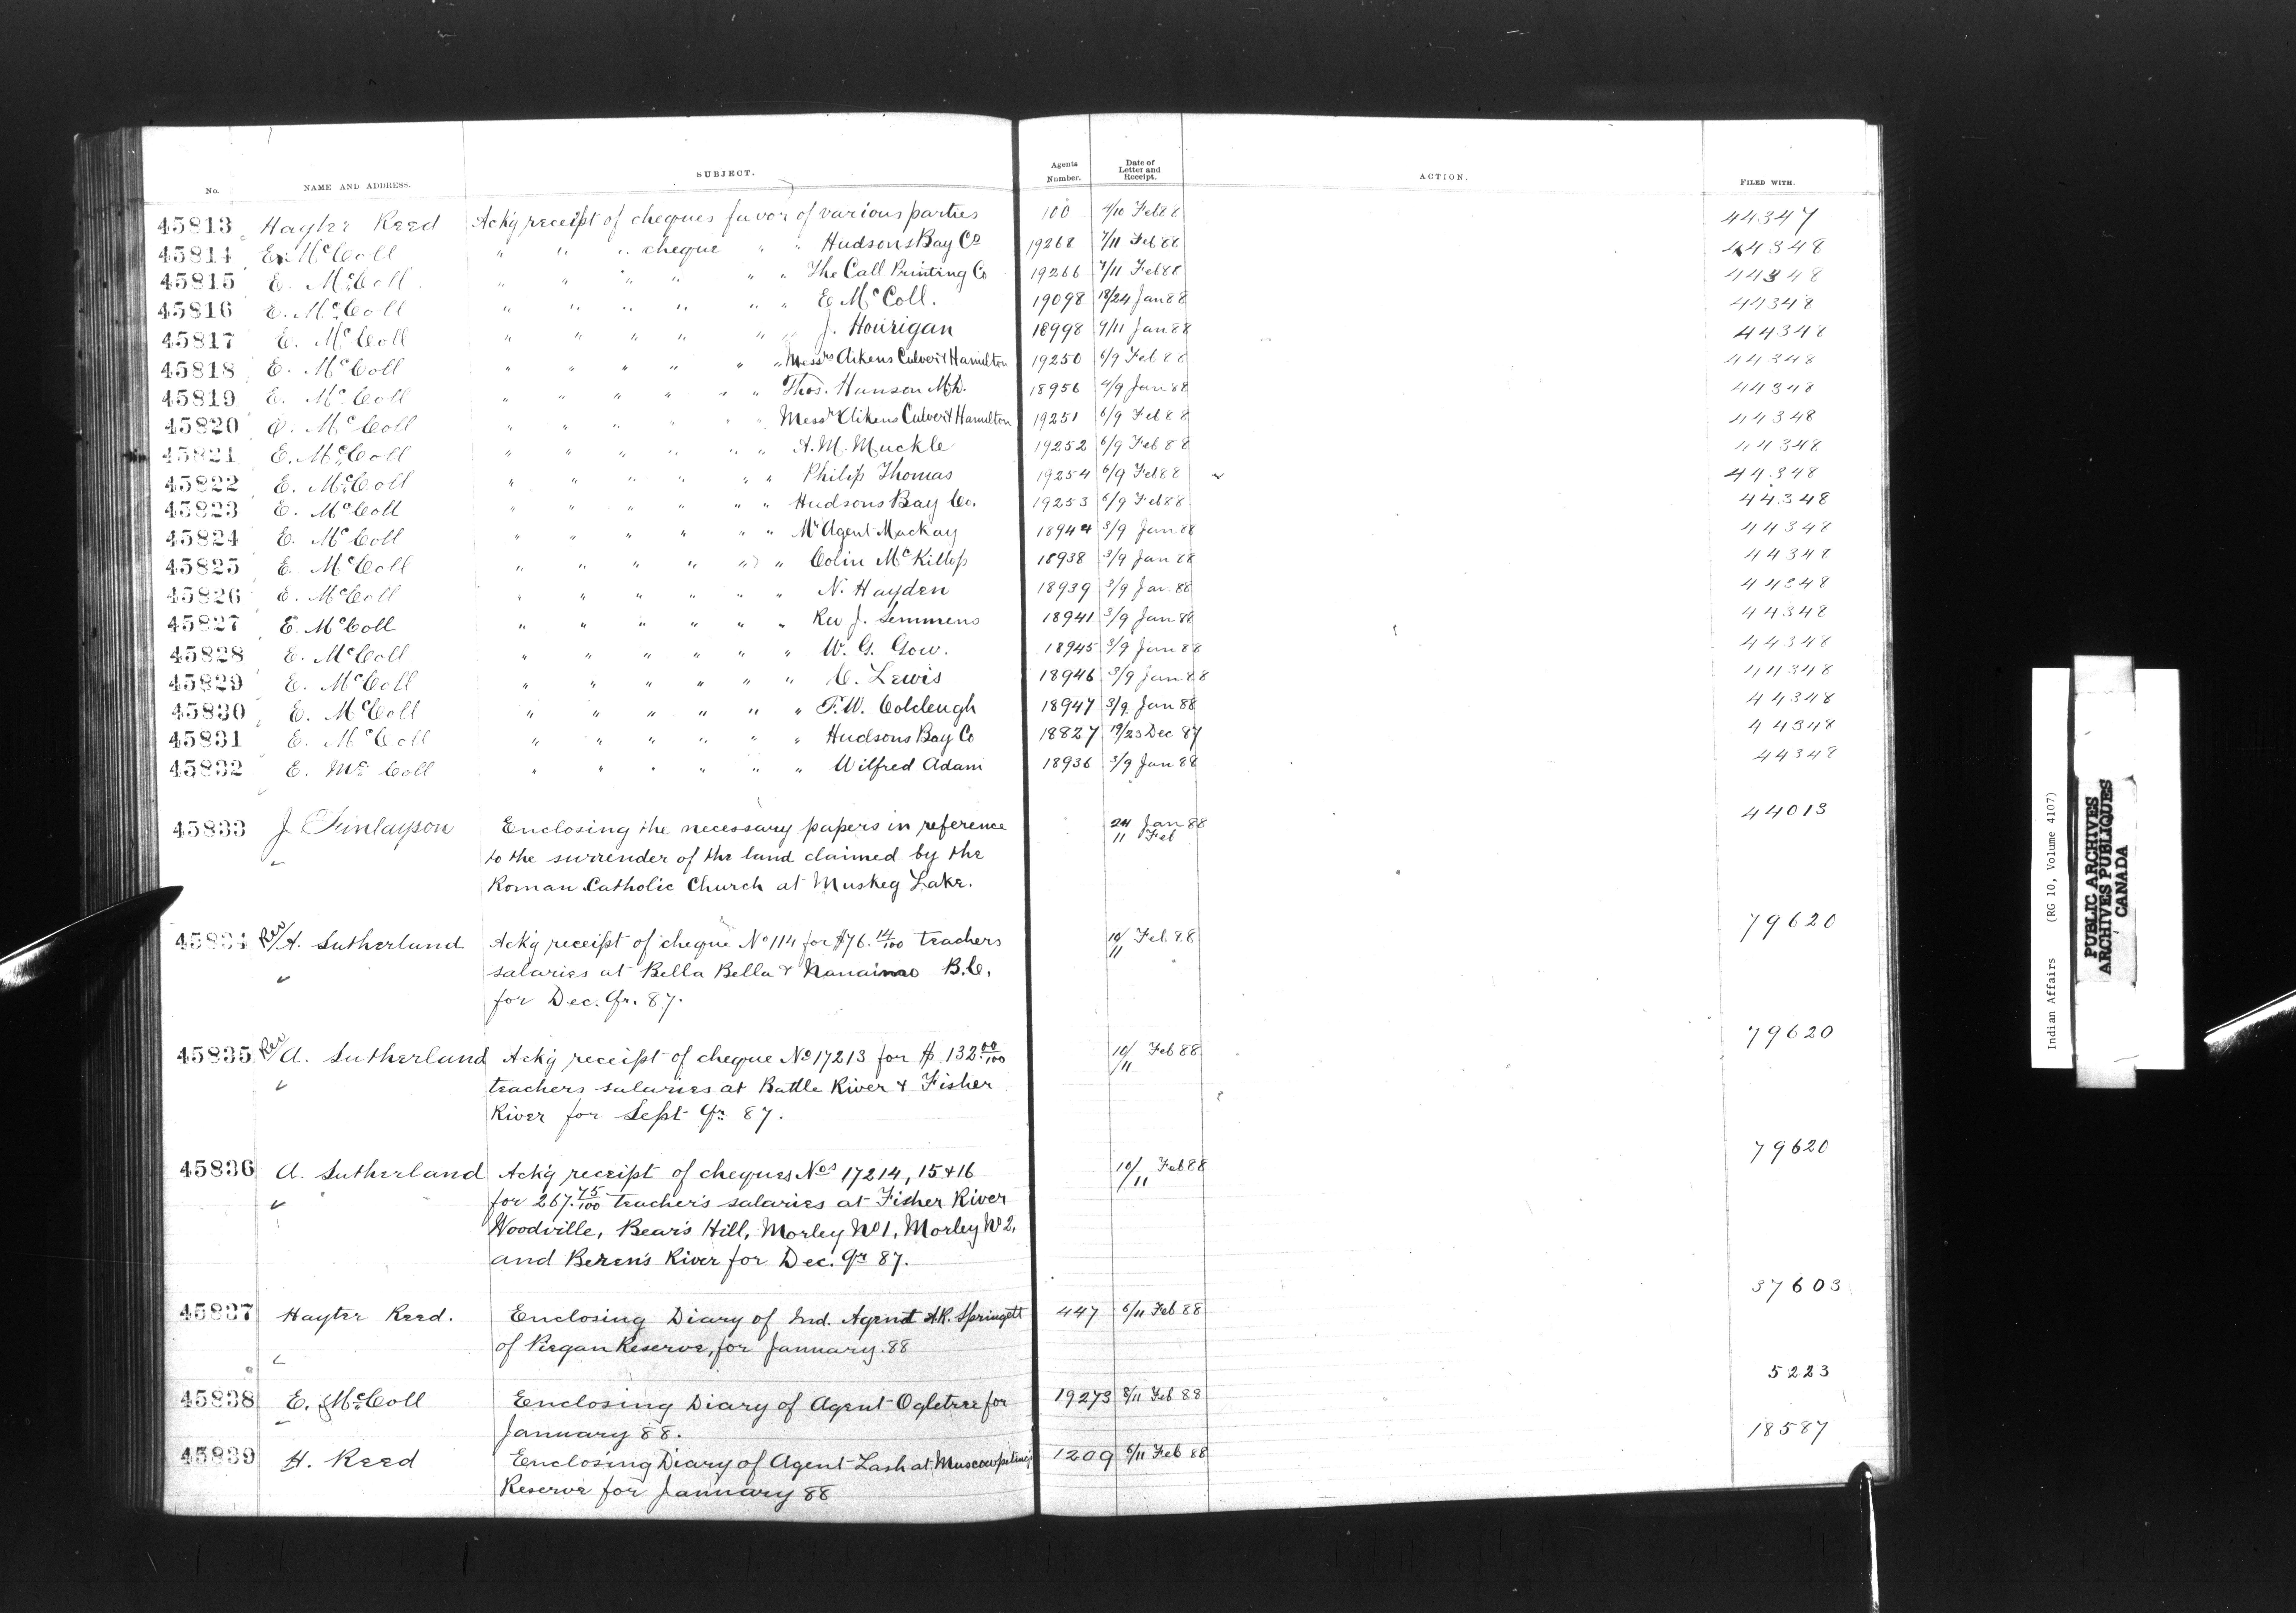 No. NAME AND ADDRESS. SUBJECT. Agents Number. Date of Letter and Receipt. ACTION. FILED WITH.
45813 Hayter Reed Ack'g receipt of cheques favor of various parties 100 4/10 Feb 88 44347
45814 E. McColl " " " cheque " " Hudsons Bay Co 19268 7/11 Feb 88 44348
45815 E. McColl " " " " " " The Call Printing Co 19266 7/11 Feb 88 44348
45816 E. McColl " " " " " " E McColl. 19098 18/24 Jan 88 44348
45817 E. McColl " " " " " " J. Hourigan 18998 9/11 Jan 88 44348
45818 E. McColl " " " " " " Messrs Aikens Culver & Hamilton 19250 6/9 Feb 88 44348
45819 E. McColl " " " " " " Thos. Hanson M.D. 18956 4/9 Jan 88 44348
45820 E. McColl " " " " " Messrs Aikens Culver & Hamilton 19251 6/9 Feb 88 44348
45821 E. McColl " " " " " " A. M. Muckle 19252 6/9 Feb 88 44348
45822 E. McColl " " " " " " Philip Thomas 19254 6/9 Feb 88 44348
45823 E. McColl " " " " " " Hudsons Bay Co. 19253 6/9 Feb 88 44348
45824 E. McColl " " " " " " Mr Agent Mackay 18944 3/9 Jan 88 44348
45825 E. McColl " " " " " " Colin McKillop 18938 3/9 Jan 88 44348
45826 E. McColl " " " " " " N. Hayden 18939 3/9 Jan 88 44348
45827 E. McColl " " " " " " Rev J. Semmens 18941 3/9 Jan 88 44348
45828 E. McColl " " " " " " W. G. Gow. 18945 3/9 Jan 88 44348
45829 E. McColl " " " " " " C. Lewis 18946 3/9 Jan 88 44348
45830 E. McColl " " " " " " F. W. Colcleugh 18947 3/9 Jan 88 44348
45831 E. McColl " " " " " " Hudsons Bay Co 18827 19/23 Dec 87 44348
45832 E. McColl " " " " " " Wilfred Adam 18936 3/9 Jan 88 44348
45833 J. Finlayson Enclosing the necessary papers in reference 24 Jan 88 44013
to the surrender of the land claimed by the 11 Feb
Roman Catholic Church at Muskeg Lake.
45834 Rev A. Sutherland Ack'g receipt of cheque No 114 for $76.14/100 teachers 10/11 Feb. 88 79620
salaries at Bella Bella & Nanaimo B.C.
for Dec. Qr. 87.
45835 Rev A. Sutherland Ack'g receipt of cheque No 17213 for $132 00/100 10/11 Feb 88 79620
teachers salaries at Battle River & Fisher
River for Sept Qr 87.
45836 A. Sutherland Ack'g receipt of cheques Nos 17214, 15 & 16 10/11 Feb 88 79620
for 267.75/100 teacher's salaries at Fisher River
Woodville, Bear's Hill, Morley No 1, Morley No 2,
and Beren's River for Dec. Qr 87.
45837 Hayter Reed. Enclosing Diary of Ind. Agent A.R. Springett 447 6/11 Feb 88 37603
of Piegan Reserve, for January. 88
45838 E. McColl Enclosing Diary of Agent Ogletree for 19273 8/11 Feb 88 5223
January 88.
45839 H. Reed Enclosing Diary of Agent Lash at Muscowpetings 1209 6/11 Feb 88 18587
Reserve for January 88
Indian Affairs (RG 10, Volume 4107)
PUBLIC ARCHIVES
ARCHIVES PUBLIQUES
CANADA